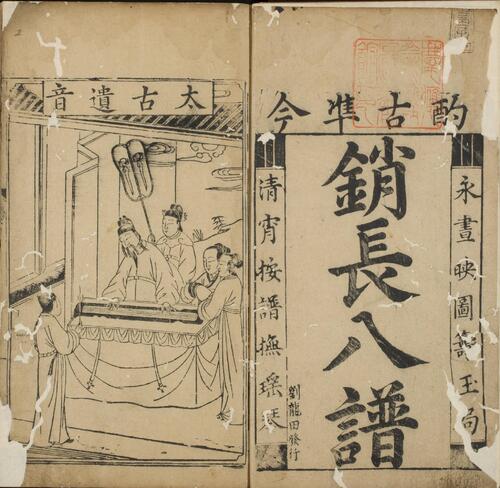 酌古準今
永晝映圖玉局
銷長八譜
清宵按譜撫瑤琹
劉龍田發行
太古遺音